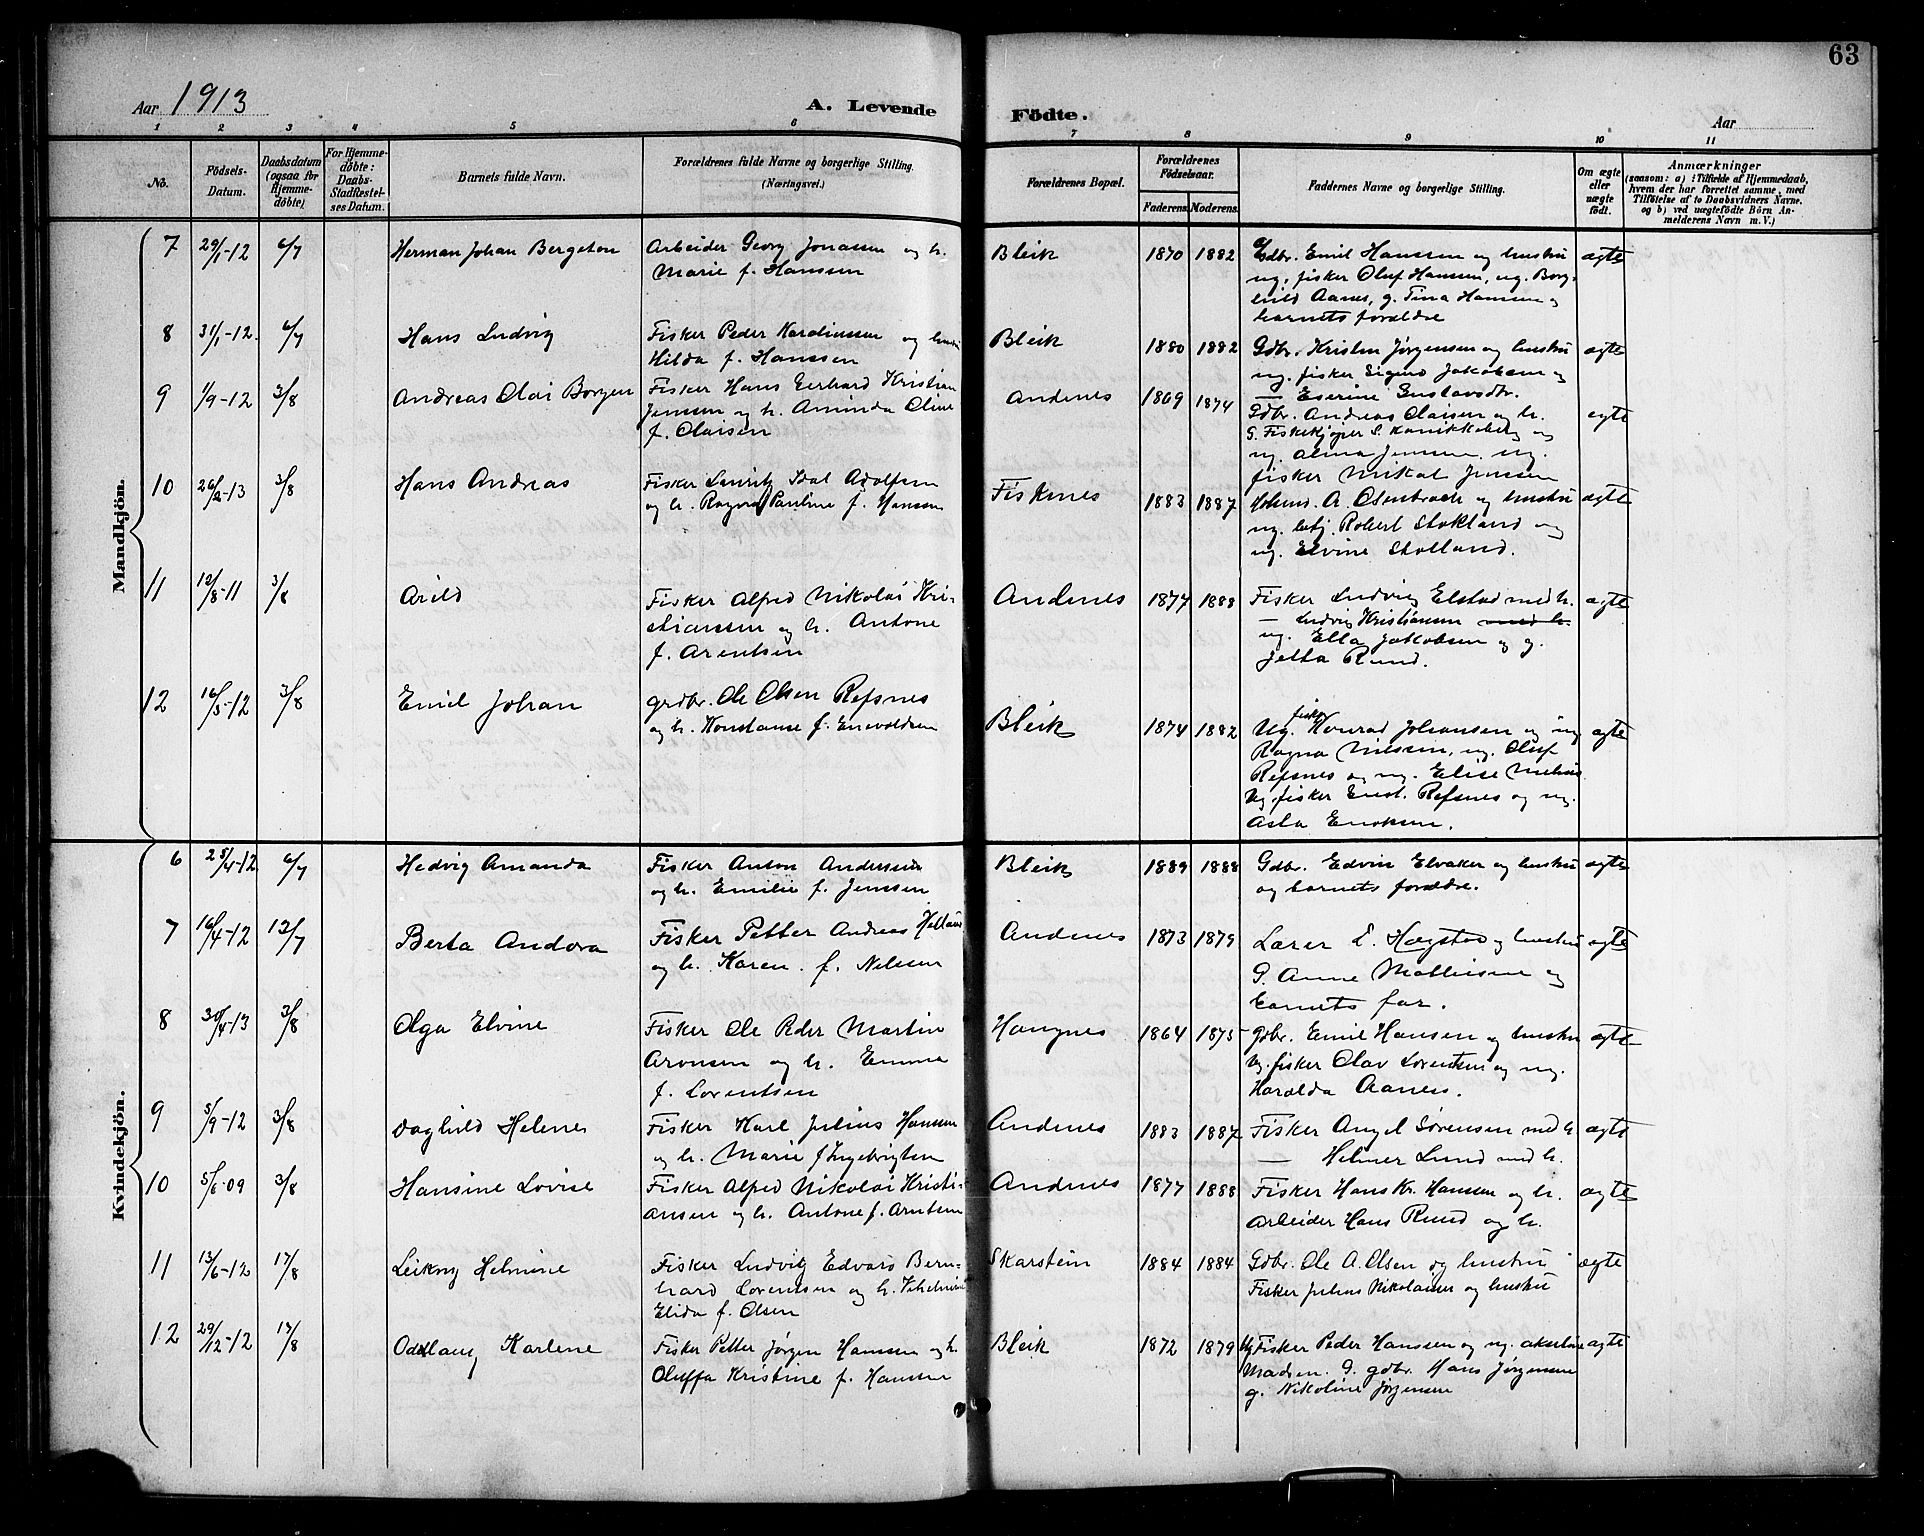 63
Aar 1913
A. Levende
Födte.
Aar
1 2 3 4 5 6 7 8 9 10 11
No.
Födsels-Datum.
Daabsdatum (ogsaa for Hjemme-döbte)
For Hjemme-döbte: Daabs-Stadfæstel-ses Datum.
Barnets fulde Navn.
Forældrenes fulde Navne og borgerlige Stilling.
(Næringsvei.)
Forældrenes Bopæl.
Forældrenes Födselsaar.
Faderens
Moderens
Faddernes Navne og borgerlige Stilling.
Om ægte eller uægte födt.
Anmærkninger
(saasom: a) i Tilfælde af Hjemmedaab,
hvem der har forrettet samme, med
Tilföielse af to Daabsvidners Navne,
og b) ved uægtefödte Börn An-
melderens Navn m. V.)
Mandkjön.
7 29/1-12 6/7 Herman Johan Bergeton Arbeider Georg Jonassen og h. Bleik 1870 1882 Gdbr. Emil Hanssen og hustru ægte
Marie f. Hanssen ug. fisker Oluf Hanssen, ug. Borg-
hild Aanes, g. Tina Hansen og
barnets forældre
8 31/1-12. 6/7 Hans Ludvig Fisker Peder Kardiussen og hustru Bleik 1880 1882 Gdbr. Kristen Jørgensen og hustru ægte
Hilda f. Hanssen ug. fisker Sigurd Jakobsen og
— Eserine Gustavsdtr.
9 1/9-12 3/8 Andreas Olai Borgen Fisker Hans Gerhard Kristian Andenes 1869 1874 Gdbr. Andreas Olaisen og h. ægte
Jenssen og h. Aminda Oline G. Fiskekjøper S. Kanikkeberg og
f. Olaisen ug. Alma Jenssen, ug.
fisker Mikal Jenssen
10 26/2-13 3/8 Hans Andreas Fisker Lauritz Adolfsen Fisknes 1883 1887 A. Olsenbach og hustru ægte
og h. Ragna Pauline f. Hanssen ug. Robert Stokland og
ug. Elvine Stolland.
11 12/8-11 3/8 Arild Fisker Alfred Nikolai Kri- Andenes 1877 1888 Fisker Ludvig Elstad med h. ægte
stianssen og h. Antone — Ludvig Kristiansen med h.
f. Arentsen ug. Ella Jakobsen og g.
Jetta Rund.
12 16/5-12 3/8 Emil Johan grdbr. Ole Olsen Refsnes Bleik 1874 1882 Ug. fisker Konrad Johansen og ug ægte
og h. Konstanse f. Enevoldsen Ragna Nilssen, ug. Oluf
Refsnes og ug. Elise
Ug. fisker Enst. Refsnes og ug.
Asta Eriksen.
Kvindekjön.
6 25/4-12 6/7 Hedvig Amanda Fisker Anton Anderssen Bleik 1889 1888 Gdbr. Edvin Elvaker og hustru ægte
og h. Emilie f. Jenssen og barnets forældre.
7 16/4-12 13/7 Berta Andora Fisker Petter Andreas Helland Andenes 1873 1879 Lærer E. Hagstad og hustru ægte
og h. Karen. f. Nilssen G. Anne Mathisen og
barnets far.
8 30/4-13 3/8 Olga Elvine Fisker Ole Peder Martin Haugnes 1864 1875 Gdbr. Emil Hansen og hustru ægte
Aronsen og h. Emma Ug. fisker Olav Lorentsen og ug.
f. Lorentsen Haralda Aanes.
9 5/9-12 3/8 Daghild Helene Fisker Karl Julius Hanssen Andenes 1883 1887 Fisker Angel Sørensen med h ægte
og h. Marie f Ingebrigtsen — Helmer Lund med h.
10 5/6-09 3/8 Hansine Lovise Fisker Alfred Nikolai Kristi- Andenes 1877 1888 Fisker Hans Kr. Hanssen og h. ægte
ansen og h. Antone f. Arntsen Arbeider Hans Rund og h.
11 13/6-12 17/8 Leikny Helmine Fisker Ludvig Edvard Bern- Skarstein 1884 1884 Gdbr. Ole A. Olsen og hustru ægte
hard Lorentsen og h. Vilhelmine Fisker Julius Nikolaisen og hustru
Elida f. Olsen
12 29/12-12 17/8 Oddlaug Karlene Fisker Petter Jørgen Hanssen og h. Bleik 1872 1879 Ug Fisker Peder Hanssen og ug. Akseline ægte
Oluffa Kristine f. Hanssen Madsen. G. gdbr. Hans Jørgensen
g. Nikoline Jørgensen